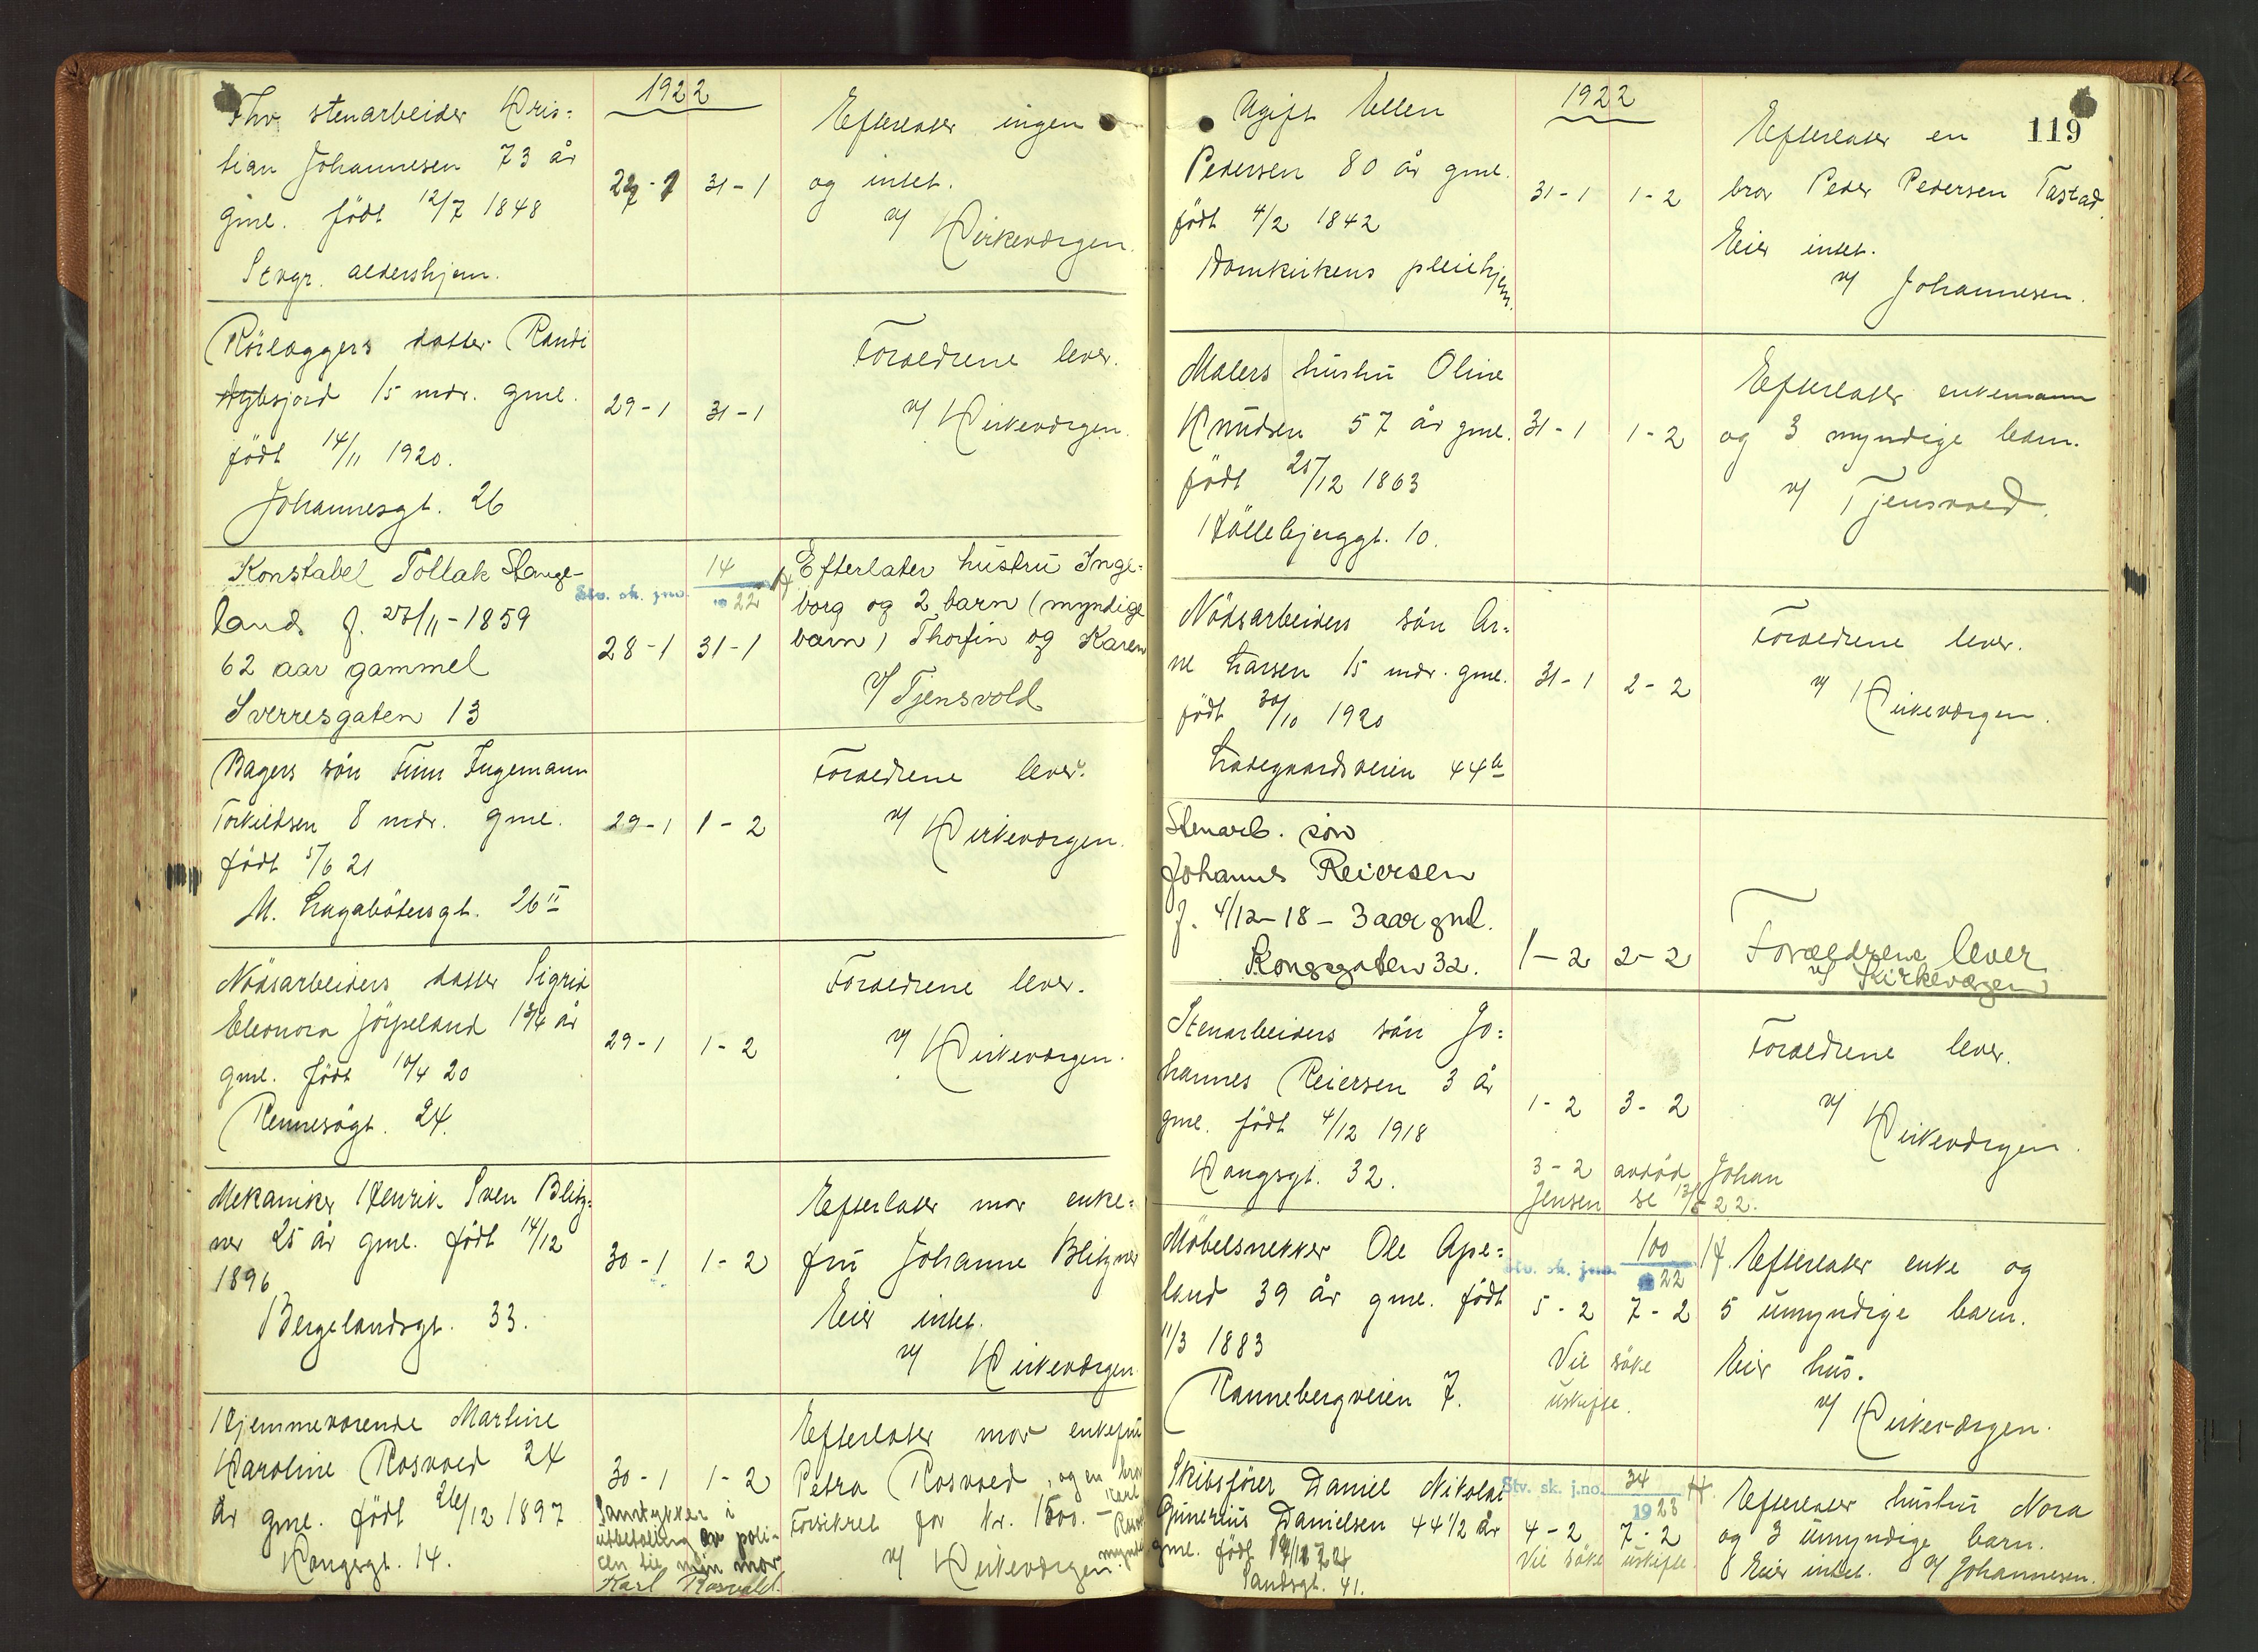 1922
Fhv. stenarbeider Kris=
tian Johannesen 73 år
gml. født 12/7 1848
Stvgr. aldershjem.
31-1
Efterlater ingen
og intet.
v/ Kirkeværgen.
Rörlæggers datter Randi
15 mdr. gml.
født 14/11 1920.
Johannesgt. 26
29-1 31-1
Forældrene lever.
v/ Kirkeværgen.
Konstabel Tollak Stange-
land f. 27/11-1859
62 aar gammel
Sverresgaten 13
Stv. sk. jno. 14
1922
28-1 31-1
Efterlater hustru Inge-
borg og 2 barn (myndige
barn) Thorfin og Karen
v/ Tjensvold
Bagers sön Finn Ingemann
Torkildsen 8 mdr. gml.
født 5/6 21
M. Lagabötersgt. 26 II
29-1 1-2
Forældrene lever.
v/ Kirkeværgen.
Nödsarbeiders datter Sigrid
Eleonora Jörpeland 1 3/4 år
gml. født 10/4 20
Rennesögt. 24.
29-1 1-2
Forældrene lever.
v/ Kirkeværgen.
Mekaniker Henrik Sven Blitz=
ner 25 år gml. født 14/12
1896
Bergelandsgt. 33.
30-1 1-2
Efterlater mor enke=
fru Johanne Blitzner
Eier intet.
v/ Kirkeværgen
Hjemmeværende Martine
Karoline Rosvold 24
år gml. født 26/12 1897
Kongsgt. 14.
30-1 1-2
Samtykker i
utbetaling av poli-
cen til min mor
Karl Rosvald.
Efterlater mor enkefru
Petra Rosvold, og en bror
Karl
Forsikret for kr. 1500.-
v/ Kirkeværgen.
119
1922
Ugift Ellen
Pedersen 80 år gml.
født 4/2 1842
Domkirkens pleiehjem.
31-1 1-2
Efterlater en
bror Peder Pedersen Tastad.
Eier intet.
v/ Johannesen.
Malers hustru Oline
Knudsen 57 år gml.
født 25/12 1863
Höllebjerggt. 10.
31-1 1-2
Efterlater enkemann
og 3 myndige barn.
v/ Tjensvold.
Nödsarbeiders sön Ar=
ne Larsen 15 mdr. gml.
født 30/10 1920
Ladegaardsveien 44b
31-1 2-2
Forældrene lever.
v/ Kirkeværgen.
Stenarb. søn
Johannes Reiersen
f. 4/12-18 - 3 aar gml.
Kongsgaten 32.
1-2 2-2
Forældrene lever
v/ Kirkeværgen
Stenarbeiders sön Jo=
hannes Reiersen 3 år
gml. født 4/12 1918
Kongsgt. 32.
1-2 3-2
Forældrene lever.
v/ Kirkeværgen.
3-2 avdöd Johan
Jensen se 22.
Möbelsnekker Ole Ape=
land 39 år gml. født
11/3 1883
Rannebergveien 7.
Stv. sk. jno. 100
1922
5-2 7-2
Vil söke
uskifte.
Efterlater enke og
5 umyndige barn.
Eier hus.
v/ Kirkeværgen.
Skibsförer Daniel Nikolai
Gunerius Danielsen 44 1/2 år
gml. født
Sandsgt. 41.
Stv. sk. j.no. 34
1923
4-2 7-2
Vil söke uskifte.
Efterlater hustru Nora
og 3 umyndige barn.
Eier intet. v/ Johannesen.